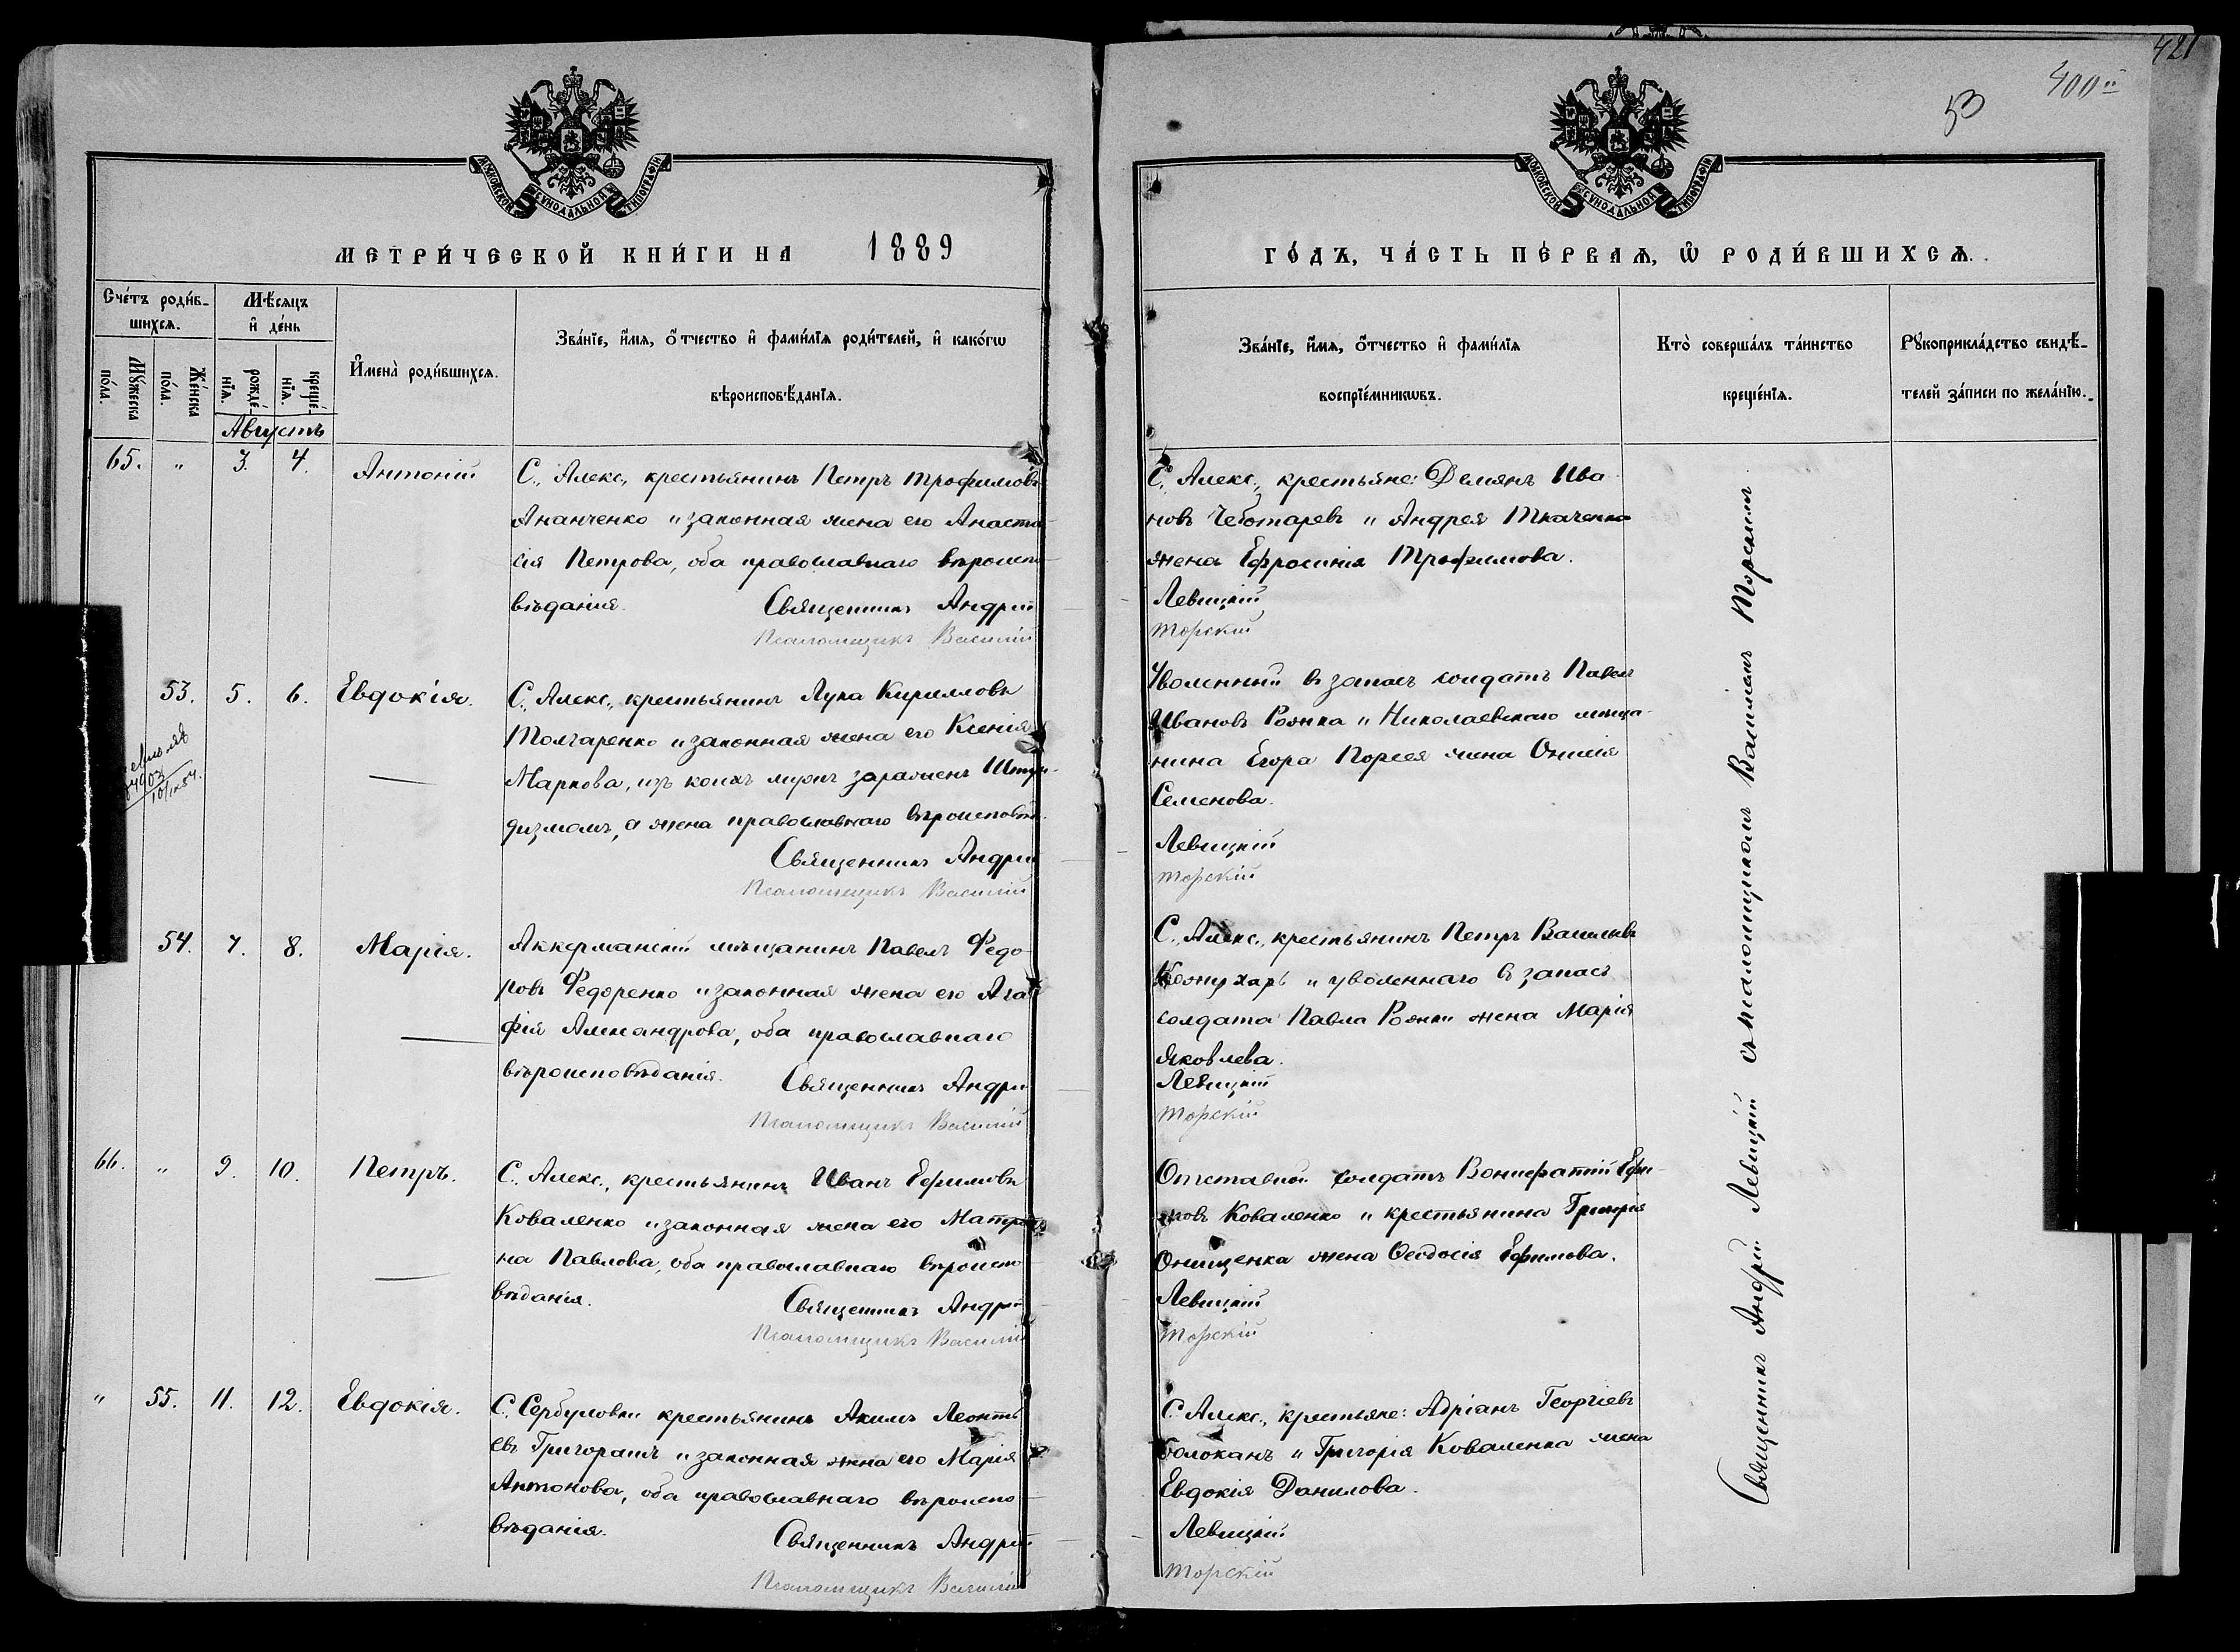 421
400
53
МОСКОВСКОЙ СѴНОДАЛЬНОЙ ТИПОГРАФІИ
МОСКОВСКОЙ СѴНОДАЛЬНОЙ ТИПОГРАФІИ
МЕТРИ́ЧЕСКОЙ КНИ́ГИ НА 1889
ГО́ДЪ, ЧА́СТЬ ПЕ́РВАѦ, Ѿ РОДИ́ВШИХСѦ.
Сче́тъ роди́в-
шихсѧ.
Мꙋ́жеска по́ла.
Же́нска по́ла.
Мѣ́сяцъ
и҆ де́нь
рожде́-
нїѧ.
креще́-
нїѧ.
Августъ
И҆мена̀ роди́вшихсѧ.
Зва́нїе, и҆́мѧ, ѻ҆́тчество и҆ фами́лїѧ роди́телей, и҆ како́гѡ
вѣроисповѣ́данїѧ.
Зва́нїе, и҆́мѧ, ѻ҆́тчество и҆ фами́лїѧ
воспрїе́мникѡвъ.
Кто̀ соверша́лъ та́инство
креще́нїѧ.
Рꙋкоприкла́дство свидѣ́-
телей за́писи по жела́нїю.
65. " 3. 4. Антоній
С. Алекс., крестьянинъ Петръ Трофимовъ
Ананченко и законная жена его Анаста-
сія Петрова, оба православнаго вѣроиспо-
вѣданія. Священникъ Андрей
Псаломщикъ Василій
С. Алекс., крестьяне: Демянъ Ива-
новъ Чеботаревъ и Андрея Ткаченка
жена Ефросинія Трофимова.
Левицкій
Торскій
53. 5. 6. Евдокія.
С. Алекс., крестьянинъ Лука Кирилловъ
Толчаренко и законная жена его Ксенія
Маркова, изъ коихъ мужъ зараженъ Штун-
дизмомъ, а жена православнаго вѣроисповѣд.
Священникъ Андрей
Псаломщикъ Василій
Уволенный въ запасъ солдатъ Павелъ
Ивановъ Рожка и Николаевскаго мѣща-
нина Егора жена
Семенова.
Левицкій
Торскій
54. 7. 8. Марія.
Аккерманскій мѣщанинъ Павелъ Федо-
ровъ Федоренко и законная жена его Ага-
фія Александрова, оба православнаго
вѣроисповѣданія. Священникъ Андрей
Псаломщикъ Василій
С. Алекс., крестьянинъ Петръ Васильевъ
Кожухарь и уволеннаго въ запасъ
солдата Павла Рожки жена Марія
Яковлева.
Левицкій
Торскій
66. " 9. 10. Петръ.
С. Алекс., крестьянинъ Иванъ Ефимовъ
Коваленко и законная жена его Матро-
на Павлова, оба православнаго вѣроиспо-
вѣданія. Священникъ Андрей
Псаломщикъ Василій
Отставной солдатъ Вонифатій Ефи-
мовъ Коваленко и крестьянина Григорія
Онищенка жена Ѳеодосія Ефимова.
Левицкій
Торскій
" 55. 11. 12. Евдокія.
С. Сербуловки крестьянинъ Акимъ Леонть-
евъ Григорашъ и законная жена его Марія
Антонова, оба православнаго вѣроиспо-
вѣданія. Священникъ Андрей
Псаломщикъ Василій
С. Алекс., крестьяне: Адріанъ Георгіевъ
Болоканъ и Григорія Коваленка жена
Евдокія Данилова.
Левицкій
Торскій
Священникъ Андрей Левицкій съ псаломщикомъ Василіемъ Торскимъ